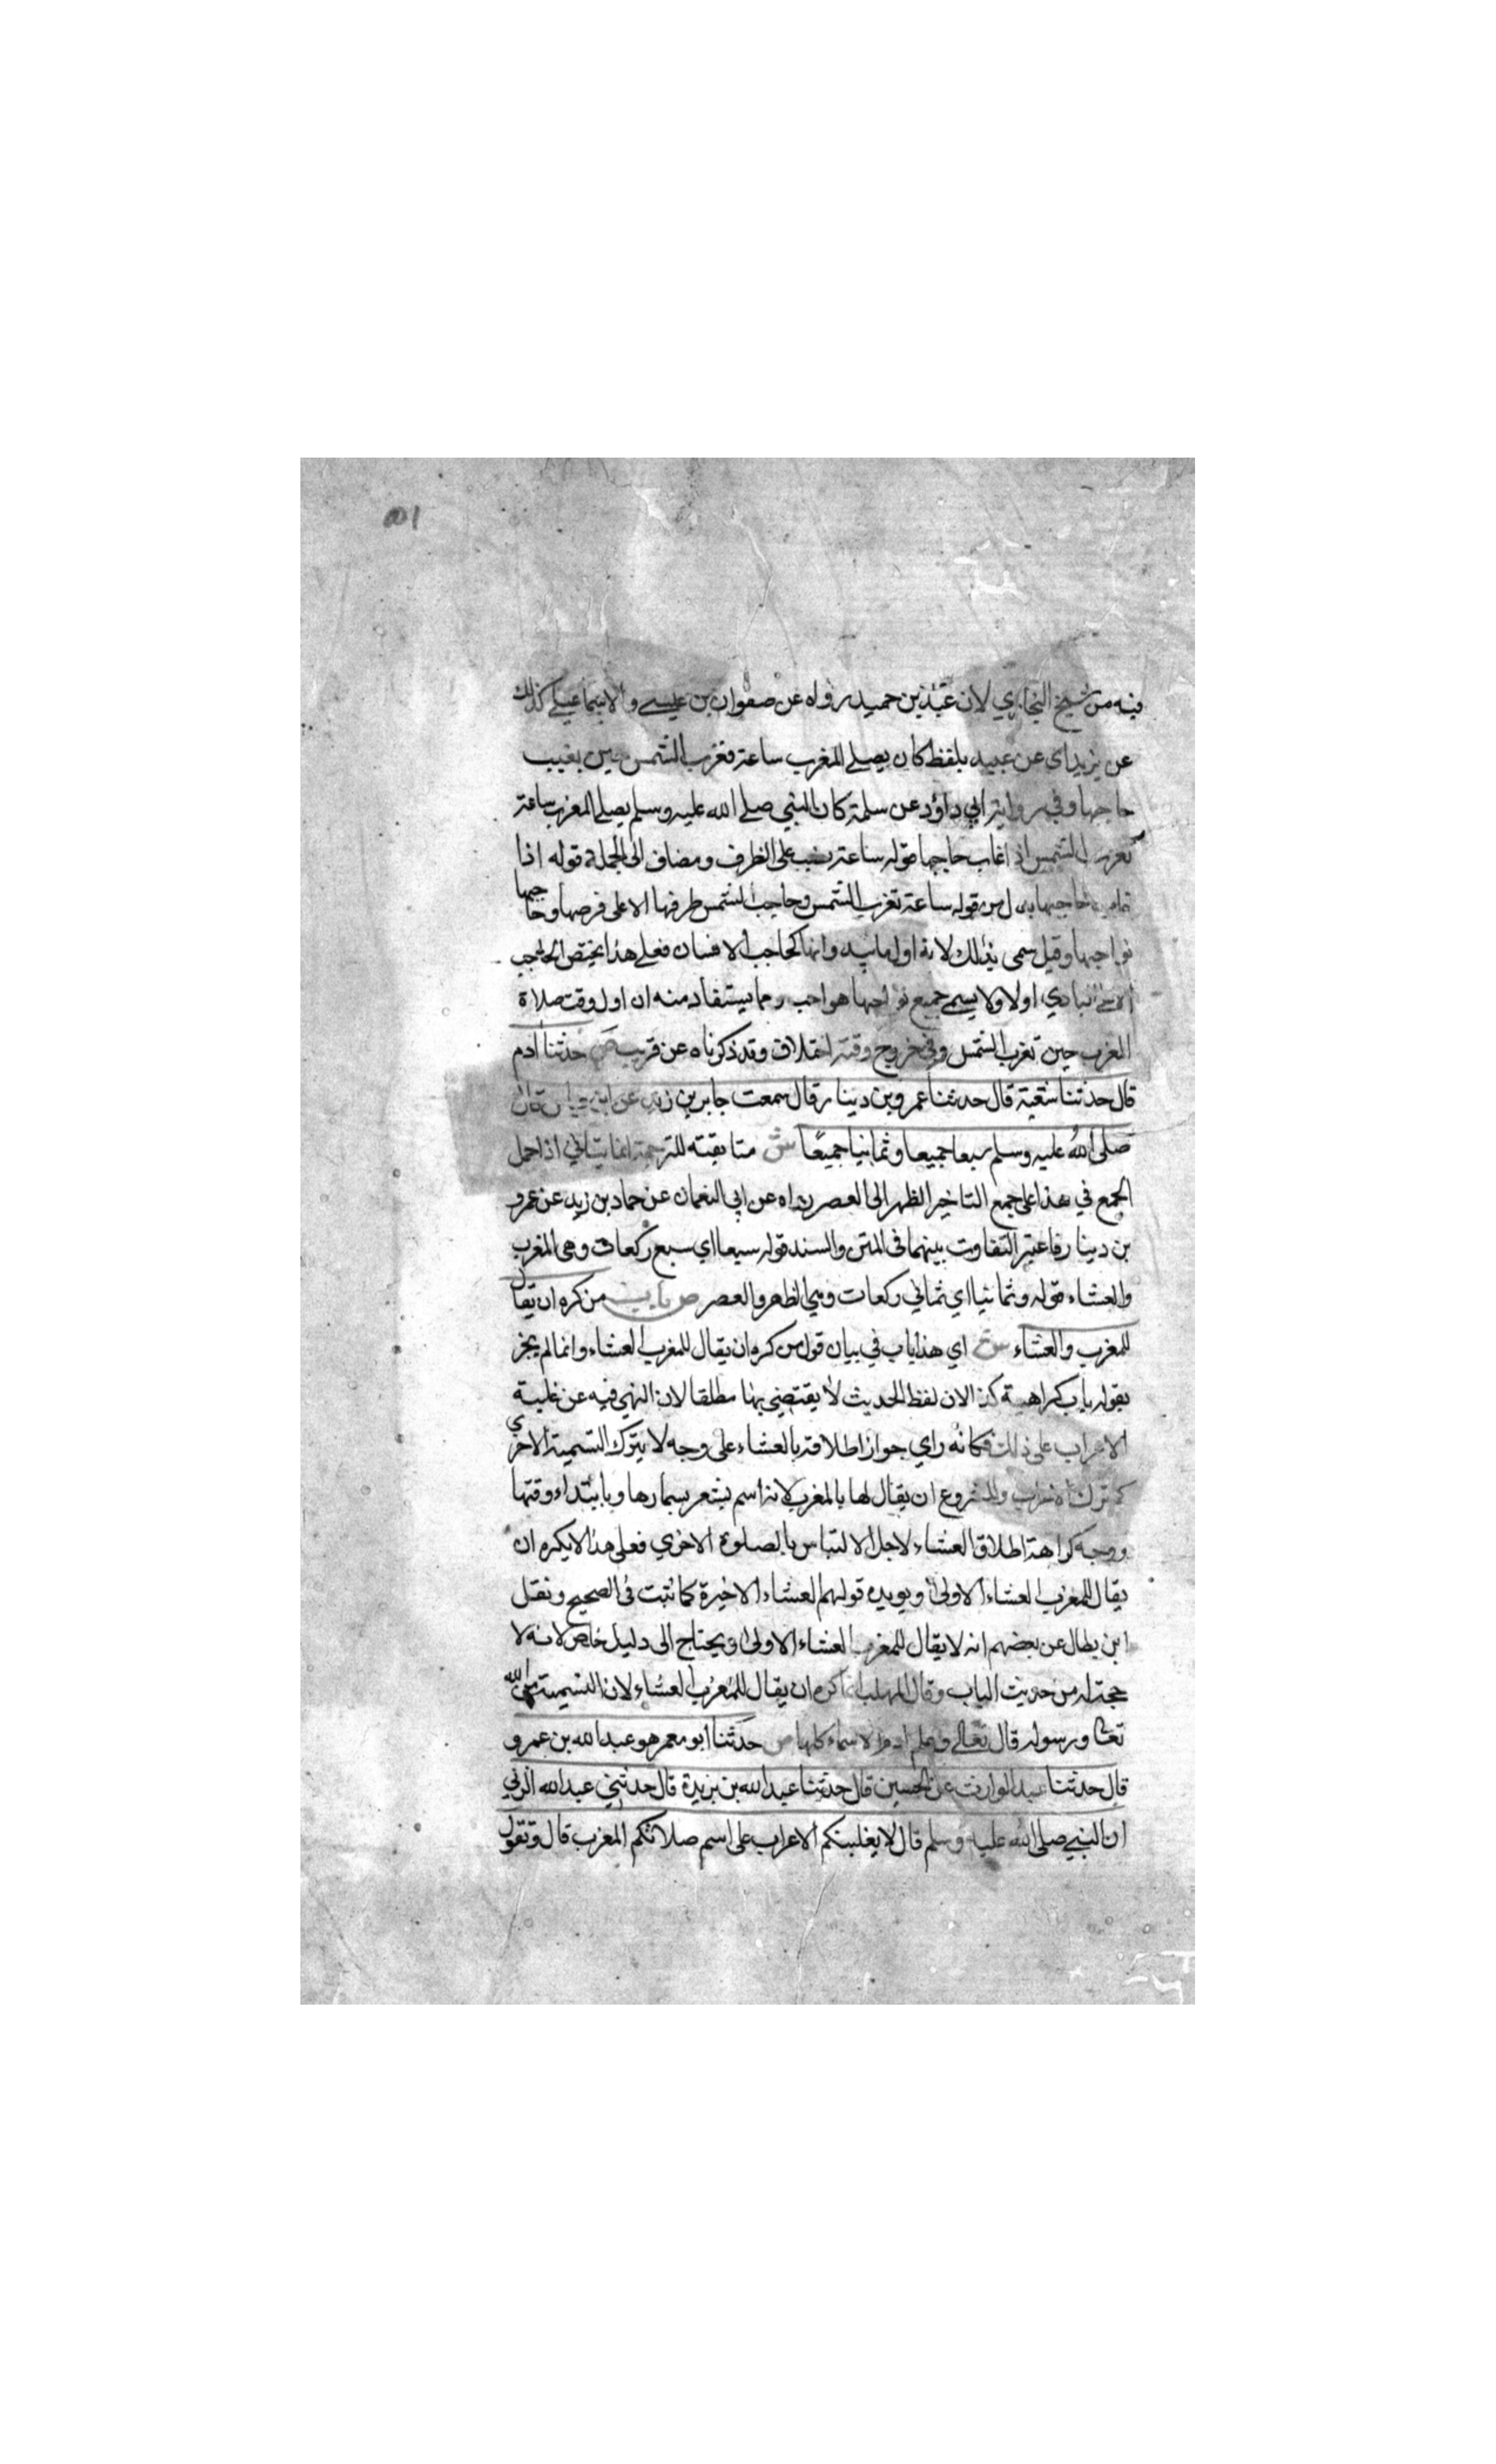 ١٥١
فيه من شيخ البخاري لان عبد بن حميد رواه عن صفوان بن عيسى والاسماعيلي كذلك
عن يزيد اى عن عبيد بلفظ كان يصلي المغرب ساعة تغرب الشمس حين يغيب
حاجبها وفي رواية ابي داود عن سلمة كان النبي صلى الله عليه وسلم يصلي المغرب ساعة
تغرب الشمس اذا غاب حاجبها قوله ساعة نصب على الظرف ومضاف الى الجملة قوله اذا
حاجبها بدل من قوله ساعة تغرب الشمس وحاجب الشمس طرفها الاعلى قرصها وحاجبها
نواجبها وقيل سمى بذلك لانه اول ما يبد وانها كحاجب الانسان فعلى هذا يختص الحاجب
البادي اولا ولا يسمى جميع نواجبها هواجب وما يستفاد منه ان اول وقت صلاة
المغرب حين تغرب الشمس وفي خروج وقته اختلاف وقد ذكرناه عن قريب ص حدثنا ادم
قال حدثنا شعبة قال حدثنا عمرو بن دينار قال سمعت جابر بن زيد عن ابن عباس قال
صلى الله عليه وسلم سبعا جميعا وثمانيا جميعا ش مطابقته للترجمة انما يتاتي اذا حمل
الجمع في هذا على جمع التاخير الظهر الى العصر رواه عن ابي النعمان عن حماد بن زيد عن عمرو
بن دينار فاعتبر التفاوت بينهما في المتن والسند قوله سبعا اي سبع ركعات وهى المغرب
والعشاء قوله وثمانيا اي ثماني ركعات وهي الظهر والعصر ص باب من كره ان يقال
للمغرب والعشاء ش اي هذا باب في بيان قول من كره ان يقال للمغرب العشاء وانما لم يجز
بقوله باب كراهية كذا لان لفظ الحديث لا يقتضى نهيا مطلقا لان النهي فيه عن غلبة
الاعراب على ذلك فكانه راي جواز اطلاقه بالعشاء على وجه لا يترك التسمية الاخري
كما ترك الاعراب والمشروع ان يقال لها بالمغرب لانه اسم يشعر بسمارها وبابتداء وقتها
ووجه كراهة اطلاق العشاء لاجل الالتباس بالصلوة الاخري فعلى هذا لا يكره ان
يقال للمغرب العشاء الاولى ويويده قولهم العشاء الاخيرة كما ثبت في الصحيح ونقل
ابن بطال عن بعضهم انه لا يقال للمغرب العشاء الاولى ويحتاج الى دليل خاص لانه لا
حجة له من حديث الباب وقال المهلب انما كره ان يقال للمغرب العشاء لان التسمية من الله
تعالى ورسوله قال تعالى وعلم ادم الاسماء كلها ص حدثنا ابو معمر هو عبد الله بن عمرو
قال حدثنا عبد الوارث عن الحسين قال حدثنا عبد الله بن بريدة قال حدثني عبد الله المزني
ان النبي صلى الله عليه وسلم قال لا يغلبنكم الاعراب على اسم صلاتكم المغرب قال وتقول